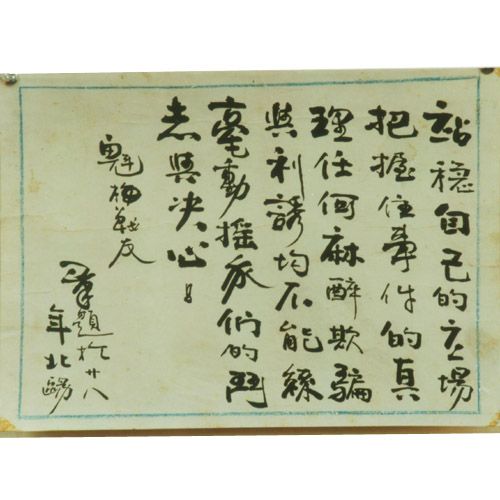 站穩自己的立場
把握住事件的真
理任何麻醉欺騙
與利誘均不能絲
毫動搖我們的鬥
志與决心！
魁梅戰友
筆題於廿八
年北鄉